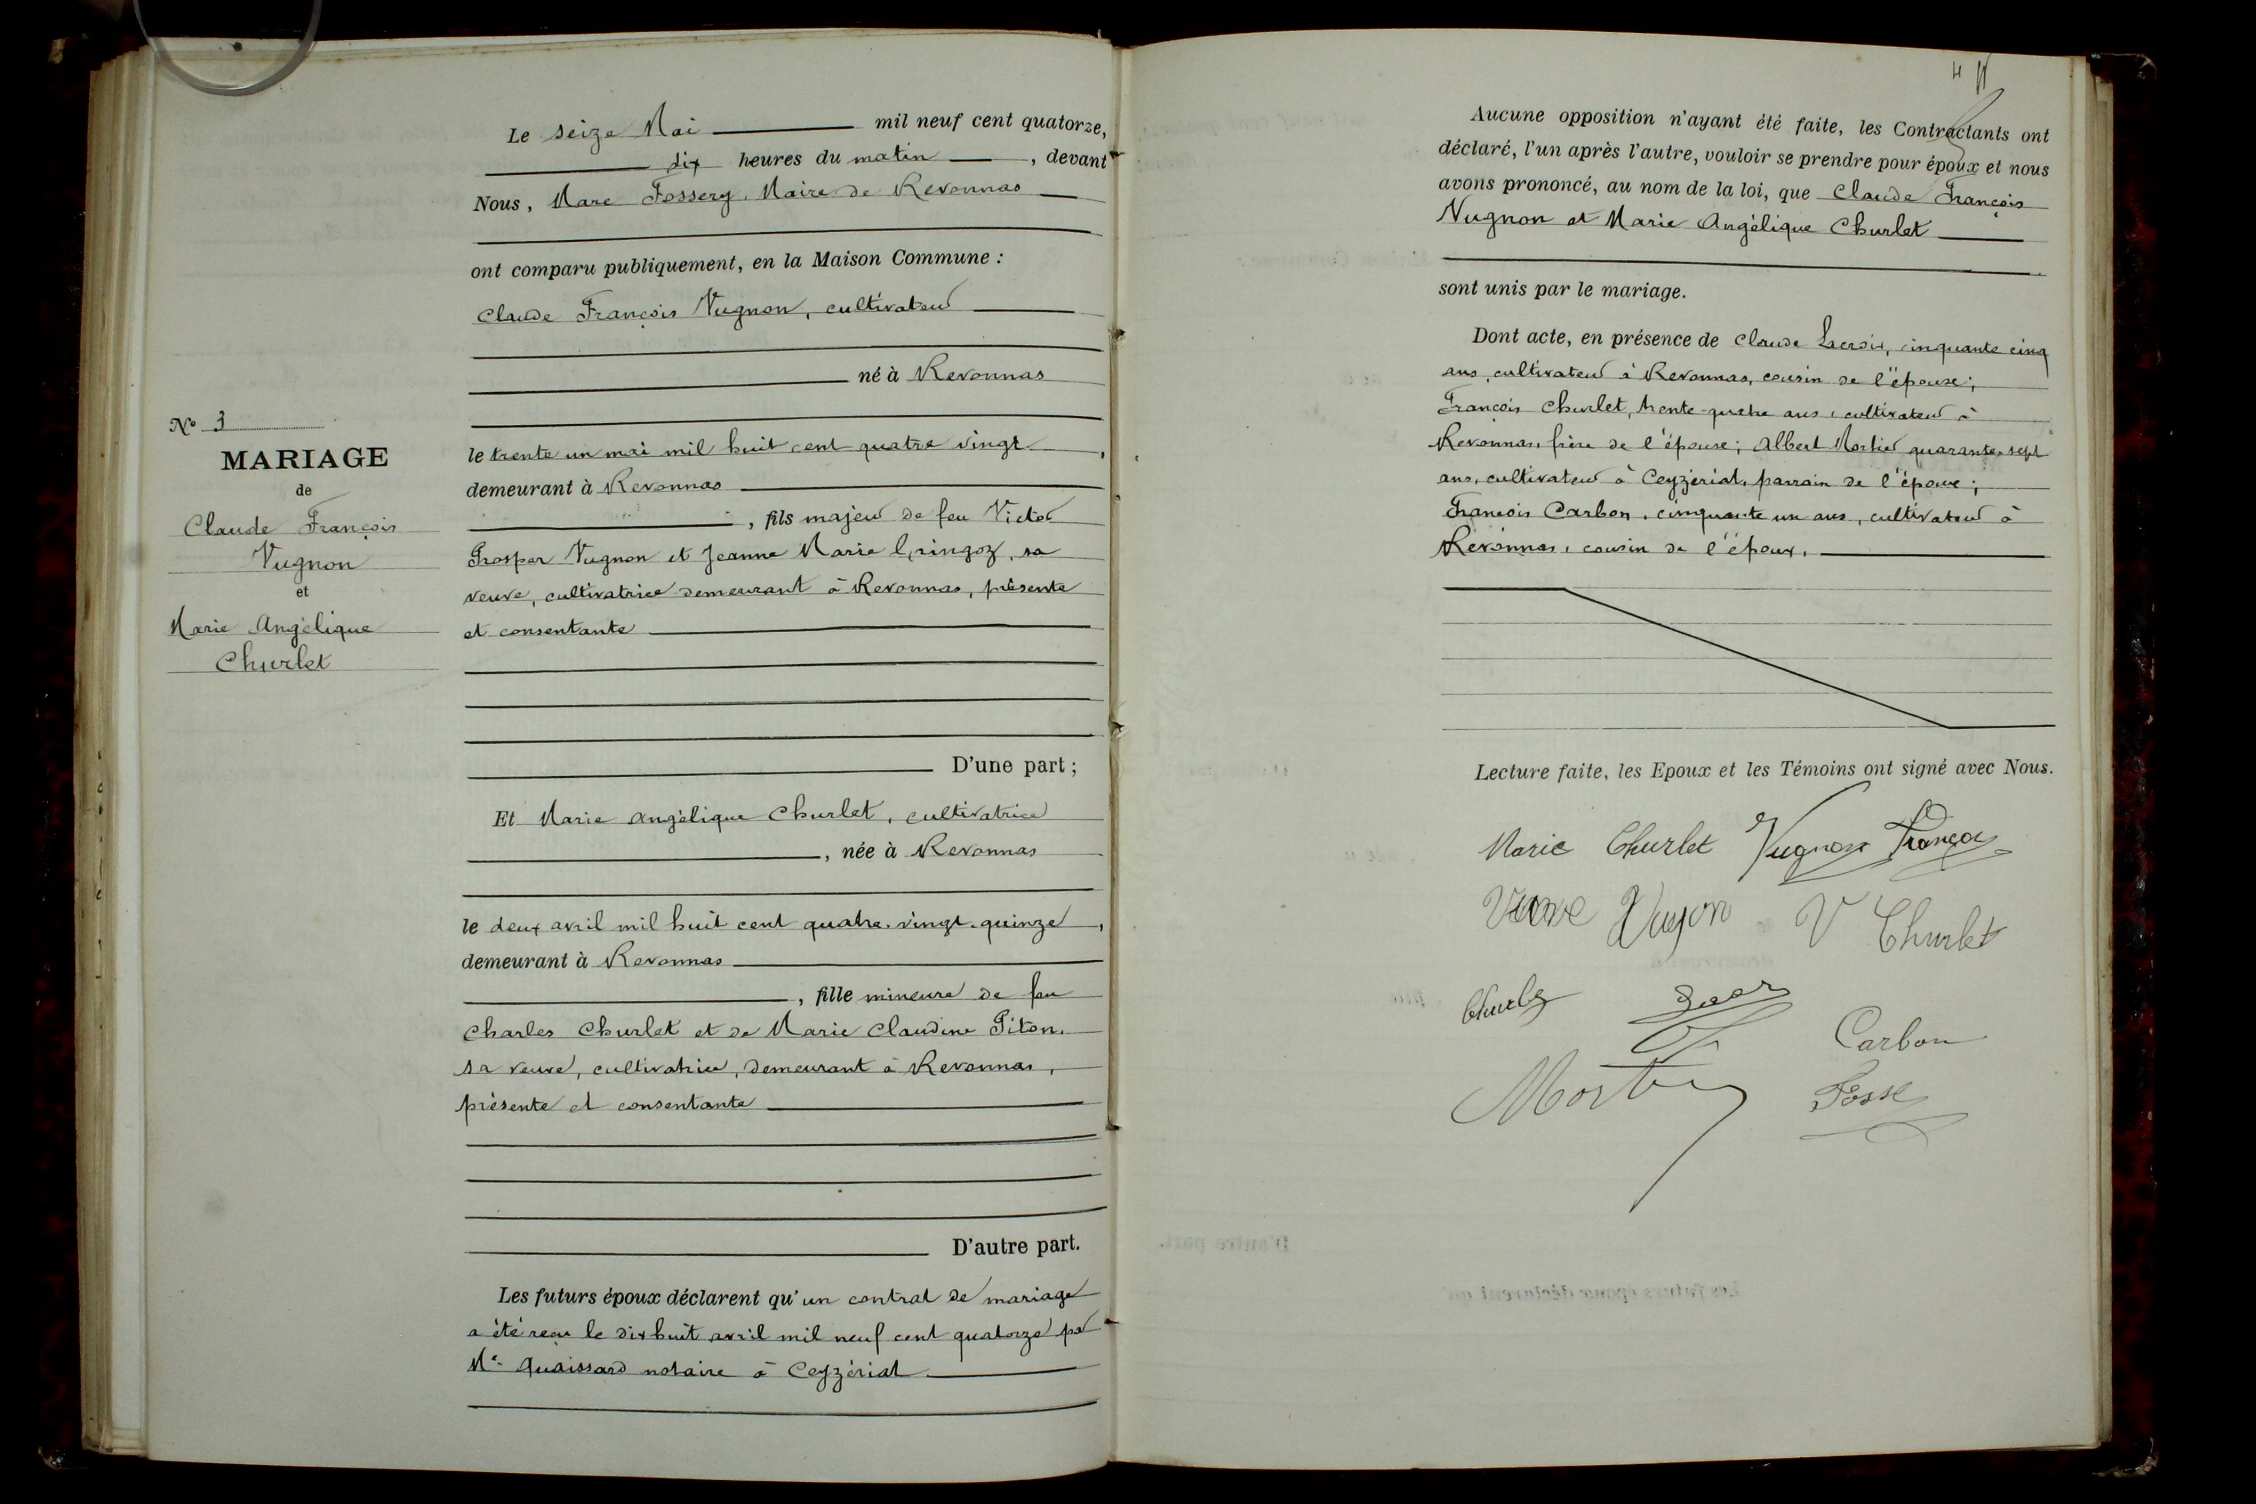 Le seize Mai mil neuf cent quatorze,
dix heures du matin, devant
Nous, Marc Fossery, Maire de Revonnas
ont comparu publiquement, en la Maison Commune :
Claude François Vugnon, cultivateur
né à Revonnas
le trente un mai mil huit cent quatre vingt,
demeurant à Revonnas
, fils majeur de feu Victor
Prosper Vugnon et Jeanne Marie Gringoz, sa
veuve, cultivatrice demeurant à Revonnas, présente
et consentante
D'une part ;
Et Marie Angélique Churlet, cultivatrice
, née à Revonnas
le deux avril mil huit cent quatre-vingt-quinze,
demeurant à Revonnas
, fille mineure de feu
Charles Churlet et de Marie Claudine Piton,
sa veuve, cultivatrice, demeurant à Revonnas,
présente et consentante
D'autre part.
Les futurs époux déclarent qu'un contrat de mariage
a été reçu le dix huit avril mil neuf cent quatorze par
Me Quaissard notaire à Ceyzériat
N° 3
MARIAGE
de
Claude François
Vugnon
et
Marie Angélique
Churlet
Aucune opposition n'ayant été faite, les Contractants ont
déclaré, l'un après l'autre, vouloir se prendre pour époux et nous
avons prononcé, au nom de la loi, que Claude François
Vugnon et Marie Angélique Churlet
sont unis par le mariage.
Dont acte, en présence de Claude Lacroix, cinquante cinq
ans, cultivateur à Revonnas, cousin de l'épouse;
François Churlet, trente-quatre ans, cultivateur à
Revonnas, frère de l'épouse; Albert Mortier quarante-sept
ans, cultivateur à Ceyzériat, parrain de l'épouse;
François Carbon, cinquante un ans, cultivateur à
Revonnas, cousin de l'époux.
Lecture faite, les Epoux et les Témoins ont signé avec Nous.
Marie Churlet Vugnon François
Veuve Vugon V Churlet
Carbon